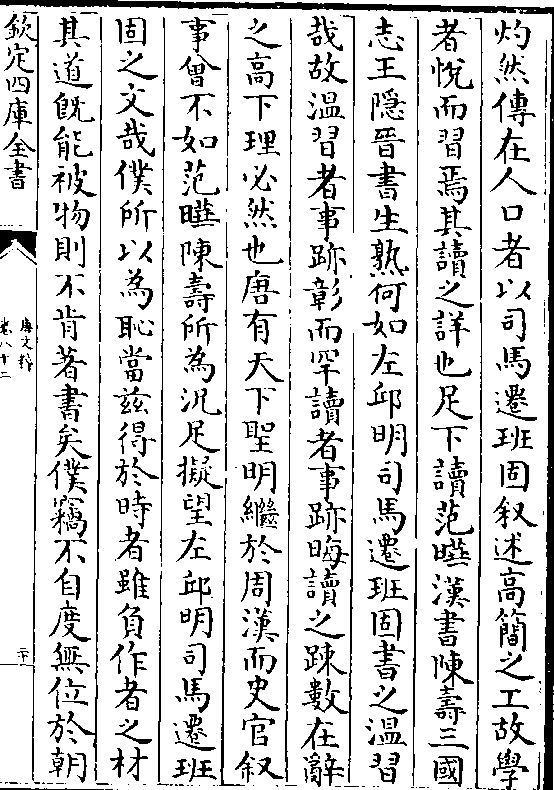 灼然傳在人口者以司馬遷班固叙述高簡之工故學
者悅而習焉其讀之詳也足下讀范曄漢書陳壽三國
志王隱晉書生熟何如左邱明司馬遷班固書之溫習
哉故溫習者事跡彰而罕讀者事跡晦讀之踈數在辭
之高下理必然也唐有天下聖明繼於周漢而史官叙
事曾不如范曄陳壽所為況足擬望左邱明司馬遷班
固之文哉僕所以為恥當兹得於時者雖負作者之材
其道旣能被物則不肯著書矣僕竊不自度無位於朝
欽定四庫全書
唐文粹
卷八十二
二十